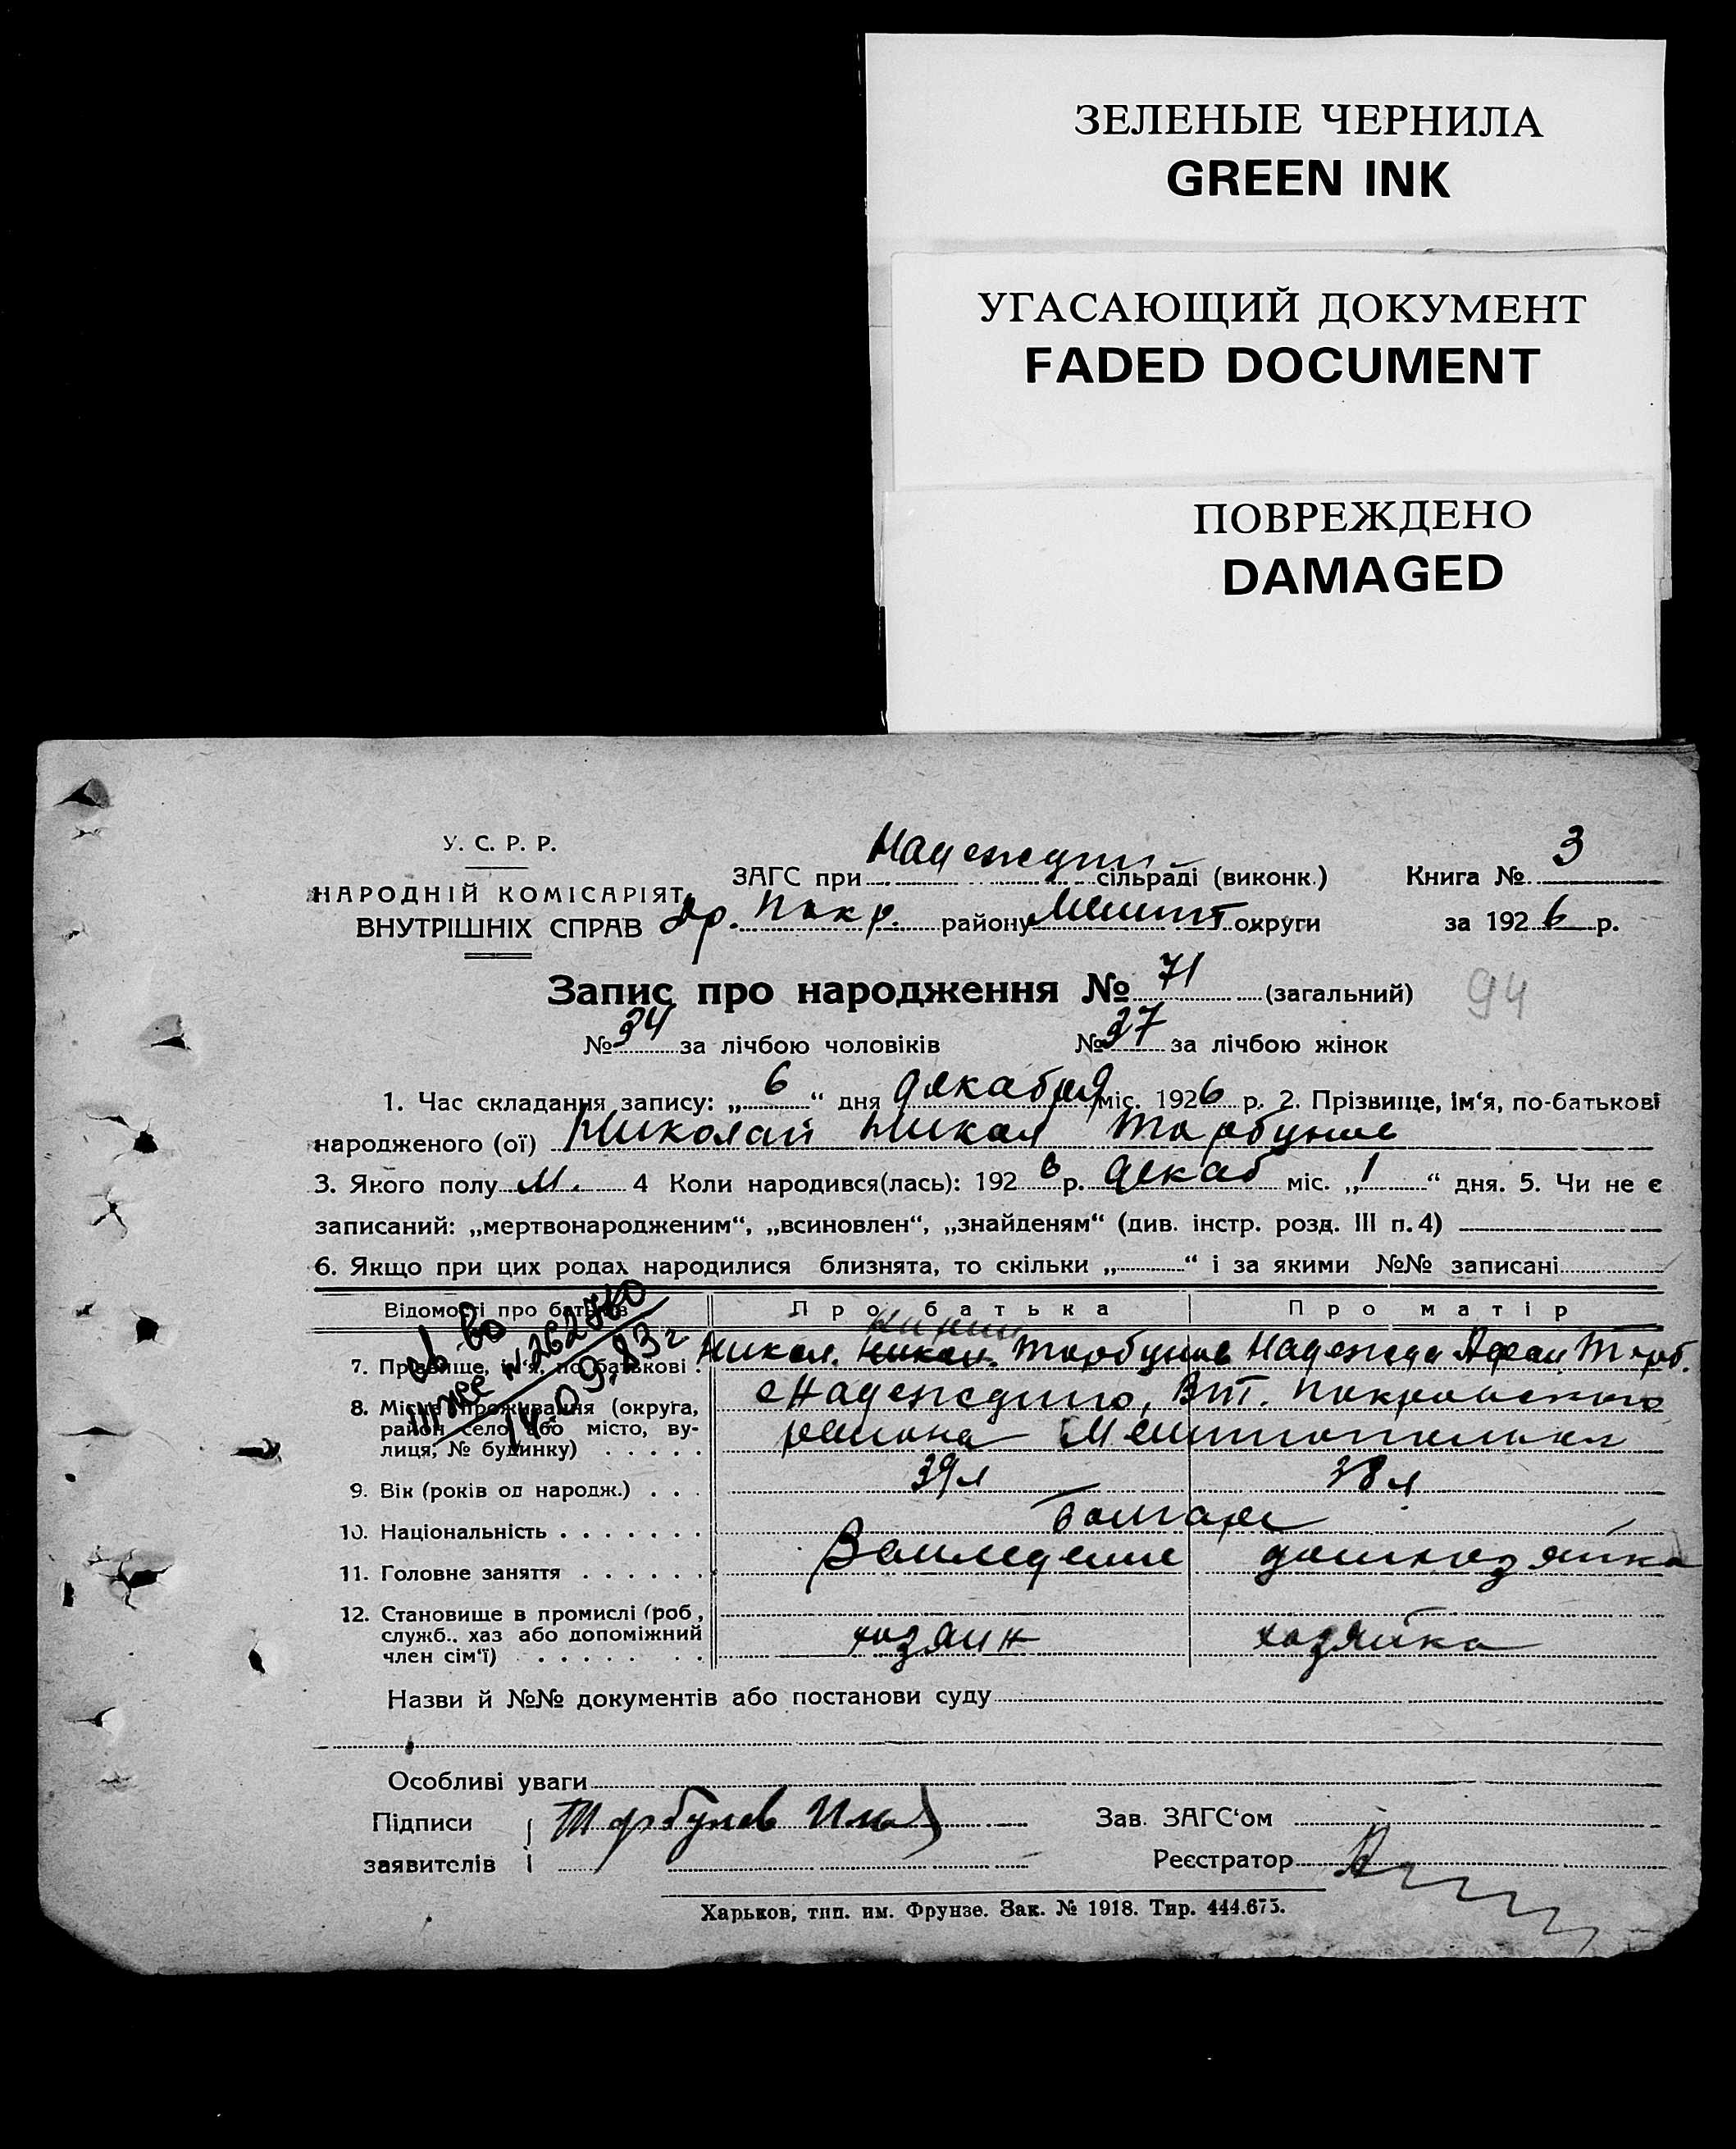 ЗЕЛЕНЫЕ ЧЕРНИЛА
GREEN INK
УГАСАЮЩИЙ ДОКУМЕНТ
FADED DOCUMENT
ПОВРЕЖДЕНО
DAMAGED
У. С. Р. Р.
НАРОДНІЙ КОМІСАРІЯТ
ВНУТРІШНІХ СПРАВ
ЗАГС при сільраді (виконк.) Книга № 3
району округи за 1926 р.
Запис про народження № 71 (загальний) 94
№ 34 за лічбою чоловіків № 37 за лічбою жінок
1. Час складання запису: „6“ дня декабря міс. 1926 р. 2. Прізвище, ім‘я, по-батькові
народженого (ої) Николай Никол
3. Якого полу м. 4 Коли народився(лась): 1926 р. декаб міс. „1“ дня. 5. Чи не є
записаний: „мертвонародженим“, „всиновлен“, „знайденям“ (див. інстр. розд. III п. 4)
6. Якщо при цих родах народилися близнята, то скільки „ “ і за якими №№ записані
Відомості про батьків Про батька Про матір
7. Прізвище, ім‘я, по батькові Никол. Надежда
8. Місце проживання (округа, район село або місто, вулиця, № будинку)
с Надеждино,
района
9. Вік (років од народж.) 39 л 38 л
10. Національність Болгаре
11. Головне заняття домохозяйка
12. Становище в промислі (роб, служб.. хаз або допоміжний член сім‘ї) хозяин хозяйка
14.09.83 г
Назви й №№ документів або постанови суду
Особливі уваги
Підписи Зав. ЗАГС‘ом
заявителів Реєстратор
Харьков, тип. им. Фрунзе. Зак. № 1918. Тир. 444.675.